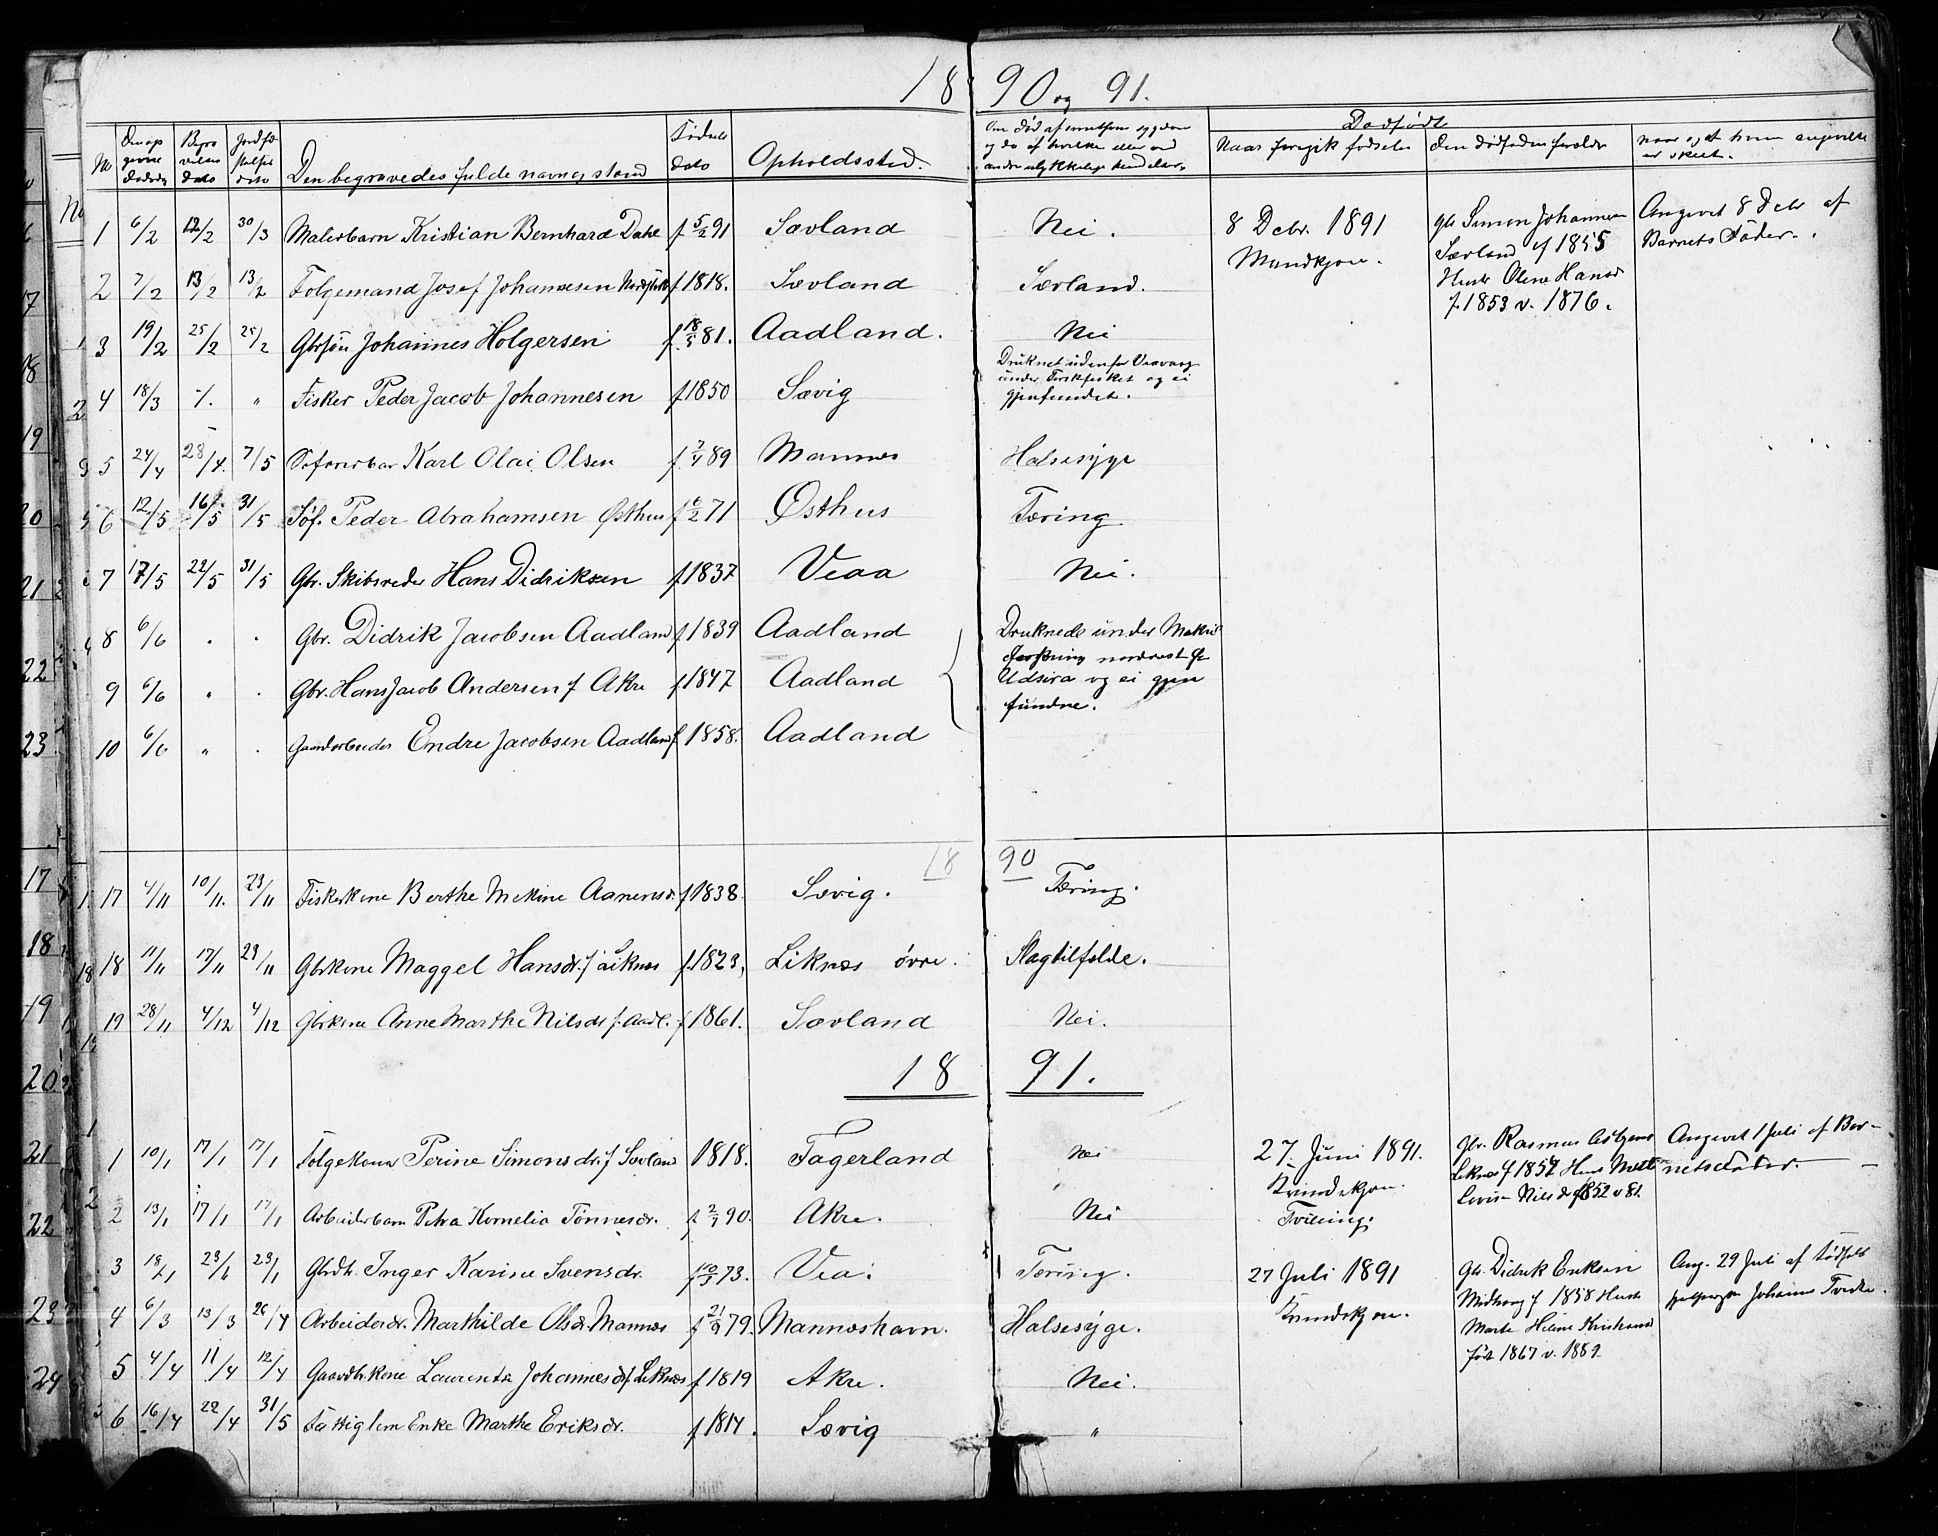 18 90 og 91.
No Den opgivne Dødsdag Begravelses dato Jordfæstelses dato Den begravedes fulde navn og stand Fødsels dato Opholdssted. Dødfødte
Naar foregik fødselen Den dødfødtes forældre naar og at hvem angivelse er skeet.
1 6/2 12/2 30/3 Malerbarn Kristian Bernhard Dahl f 5/2 91 Sævland Nei. 8 Decbr. 1891 Mandkjøn. gbr Simon Johannesen Sævland f 1855 Hustr Oline Hansd f. 1853 v. 1876. Angivet 8 Decbr af Barnets Fader.
2 7/2 13/2 13/2 Følgemand Josef Johannesen f 1818. Sævland Sævland.
3 19/2 25/2 25/2 Gbrsøn Johannes Holgersen f 18/5 81. Aadland. Nei
4 18/3 ./. " Fisker Peder Jacob Johannesen f 1850 Sævig Druknet udenfor under Torskfisket og ei gjenfundet.
5 24/4 28/4. 7/5 Karl Olai Olsen f 2/4 89 Mannes Halsesyge
6 12/5 16/5 31/5 Søf. Peder Abrahamsen Østhus f 6/2 71 Østhus Tæring
7 17/5 22/5 31/5 Gbr. Skibsreder Hans Didriksen f 1837 Veaa Nei.
8 6/6 . . Gbr. Didrik Jacobsen Aadland f 1839 Aadland Druknede under Makrel
9 6/6 " . Gbr. Hans Jacob Andersen f Akre f 1847 Aadland nordvest for Udsira og ei gjen fundne.
10 6/6 " . Gaardarbeider Endre Jacobsen Aadland f. 1858. Aadland
18 90
17 4/11 10/11. 23/11 Fiskerkone Berthe Mekine Aanensd. f 1838. Sævig. Tæring.
18 11/11 17/11 23/11 Gbrkone Maggel Hansdr. f Liknes f. 1823, Liknæs øvre. Slagtilfælde.
19 28/11 4/12 4/12 Gbrkone Anne Marthe Nilsdr f. Aadl. f 1861. Sævland Nei.
18 91.
1 10/1 17/1 17/1 Følgekone Perine Simonsdr. f Sævland 1818. Fagerland Nei 27. Juni 1891. Kvindekjøn. Tvilling. Gbr. Rasmus Liknes f 1857 Hus Mette Lovise Nilsd f 1852 v 81. Angivet 1 Juli af Bar-netsfader.
2 13/1 17/1 17/1 Arbeiderbarn Petra Kornelia Tønnesdr. f 2/7 90. Akre. Nei
3 18/1 23/1 23/1 Gbrdtr. Inger Karine Svensdr. f 10/5 73. Vea. Tæring. 27 Juli 1891 Kvindekjøn. Gbr. Didrik Eriksen f 1858 Hustr Marte Helene født 1867 v. 1889. Ang. 29 Juli af Fødsels Johanne
4 6/3 13/3 26/4 Arbeiderdr. Marthilde Olsdr. Mannes f 21/9 79. Manneshavn. Halsesyge.
5 4/4 11/4 12/4 Gaardbr.kone Laurentse Johannesd f Liknes f 1819 Akre. Nei.
6 16/4 22/4 31/5 Fattiglem Enke Marthe Eriksdr. f 1814. Sævig "